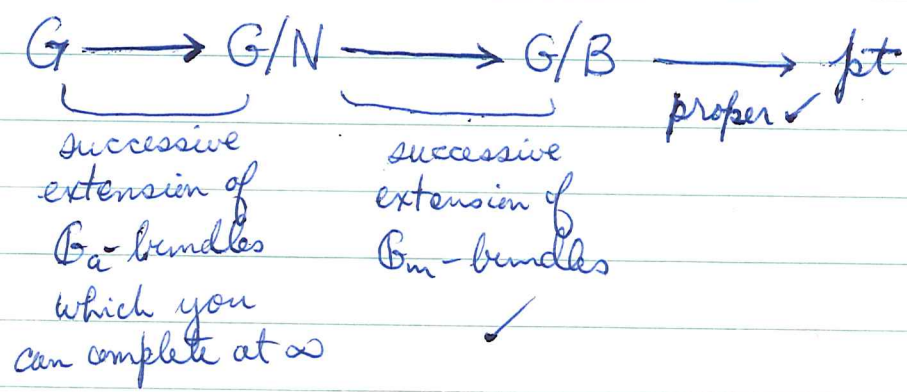 G → G/N → G/B → pt
proper ✓
successive
extension of
G_a-bundles
which you
can complete at ∞
successive
extension of
G_m-bundles
✓